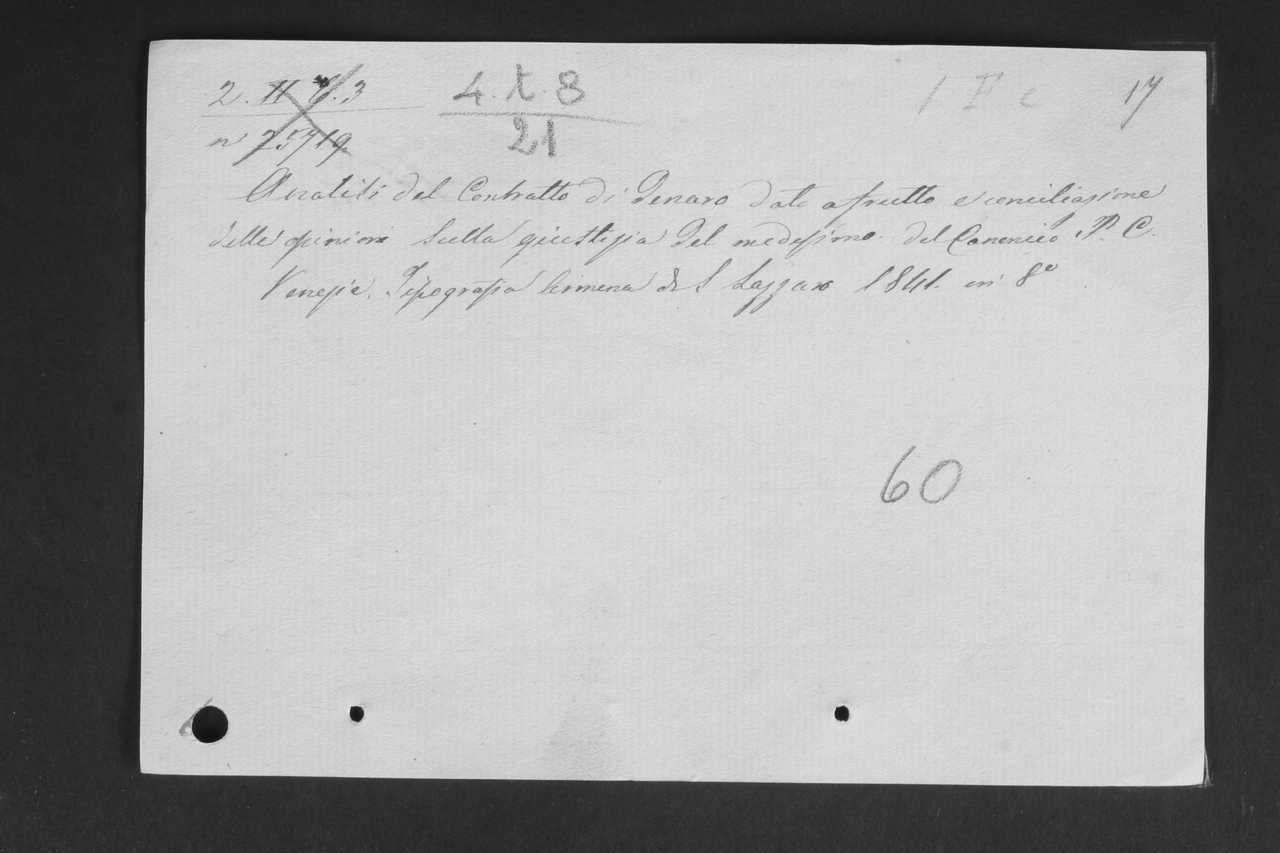 2. H 6. 3 4. t. 8 1 F c 17
n 25719 21
Analisi del Contratto di Denaro dato a frutto e conciliazione
delle opinioni sulla giustizia del medesimo. del Canonico P. C.
Venezia. Tipografia Armena di S Lazzaro 1841. in 8º
60